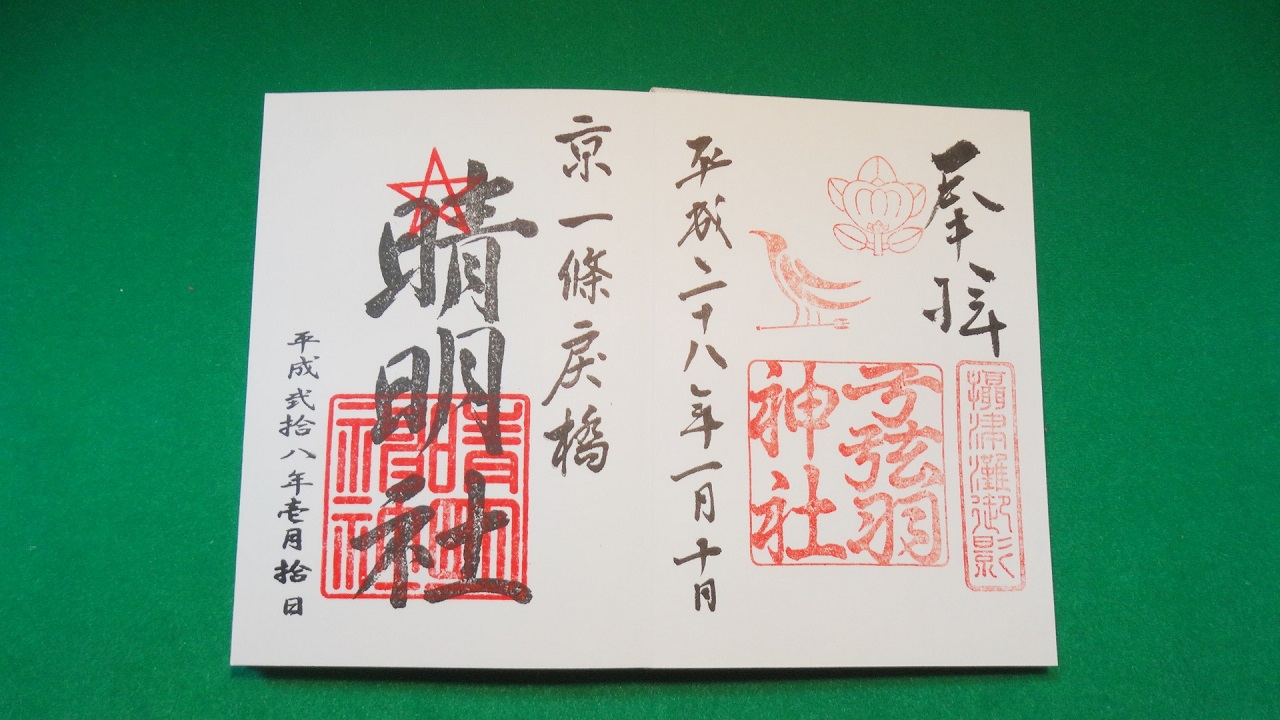 奉拝
摂津灘御影
弓弦羽
神社
平成二十八年一月十日
京一條戻橋
晴明社
晴明
神社
平成弐拾八年壱月拾日